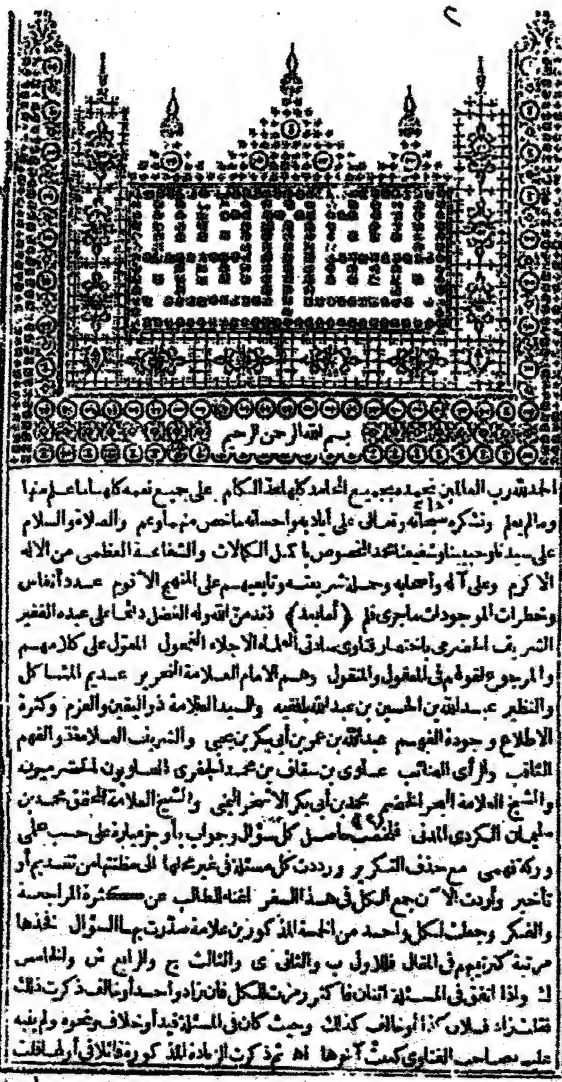 ٢
بسم الله الرحمن الرحيم
الحمد لله رب العالمين نحمده بجميع المحامد كلها لعد الكلام على جميع نعمه كلها ما علم منها
وما لم يعلم ونشكره سبحانه وتعالى على أياديه واحسانه ما خص منهما وعم والصلاة والسلام
على سيدنا وحبيبنا وشفيعنا محمد المخصوص بأكمل الكمالات والشفاعة العظمى من الاله
الاكرم وعلى آله وأصحابه وحملة شريعته وتابعيهم على المنهج الاقوم عدد أنفاس
وخطرات الموجودات ما جرى قلم (أما بعد) فقد من الله وله الفضل دائما على عبده الفقير
الشريف الحضرمي باختصار فتاوى سادتى العلماء الاجلاء الفحول المعول على كلامهم
والمرجوع لقولهم في المعقول والمنقول وهم الامام العلامة النحرير عديم المشاكل
والنظير عبد الله بن الحسين بن عبد الله بلفقيه والسيد العلامة ذو اليقين والعزم وكثرة
الاطلاع وجودة الفهم عبد الله بن عمر بن أبي بكر بن يحيى والشريف العلامة ذو الفهم
الثاقب والرأى الصائب علوى بن سقاف بن محمد الجفرى العلويون الحضرميون
والشيخ العلامة البحر الخضم محمد بن أبي بكر الاشخر اليمنى والشيخ العلامة المحقق محمد بن
سليمان الكردى المدنى فلخصت حاصل كل سؤال وجواب بأوجز عبارة على حسب علمى
وركة فهمى مع حذف التكرير ورددت كل مسئلة في غير محلها الى مظنتها من تقديم أو
تأخير وأردت الآن جمع الكل في هذا السفر اغناء للطالب عن كثرة المراجعة
والفكر وجعلت لكل واحد من الخمسة المذكورين علامة صدرت بها السؤال فخذها
مرتبة كترتيبهم في المقال فللاول ب والثانى ى والثالث ج والرابع ش والخامس
ك واذا اتفق في المسئلة اثنان فاكثر رمزت للكل فان زاد واحد أو خالف ذكرت ذلك
فقلت زاد فلان كذا أو خالف كذلك وحيث كان في المسئلة قيد أو خلاف ونحوه ولم ينبه
عليه صاحب الفتاوى كتبت آخرها اه ثم ذكرت الزيادة المذكورة قائلا في أولها قلت